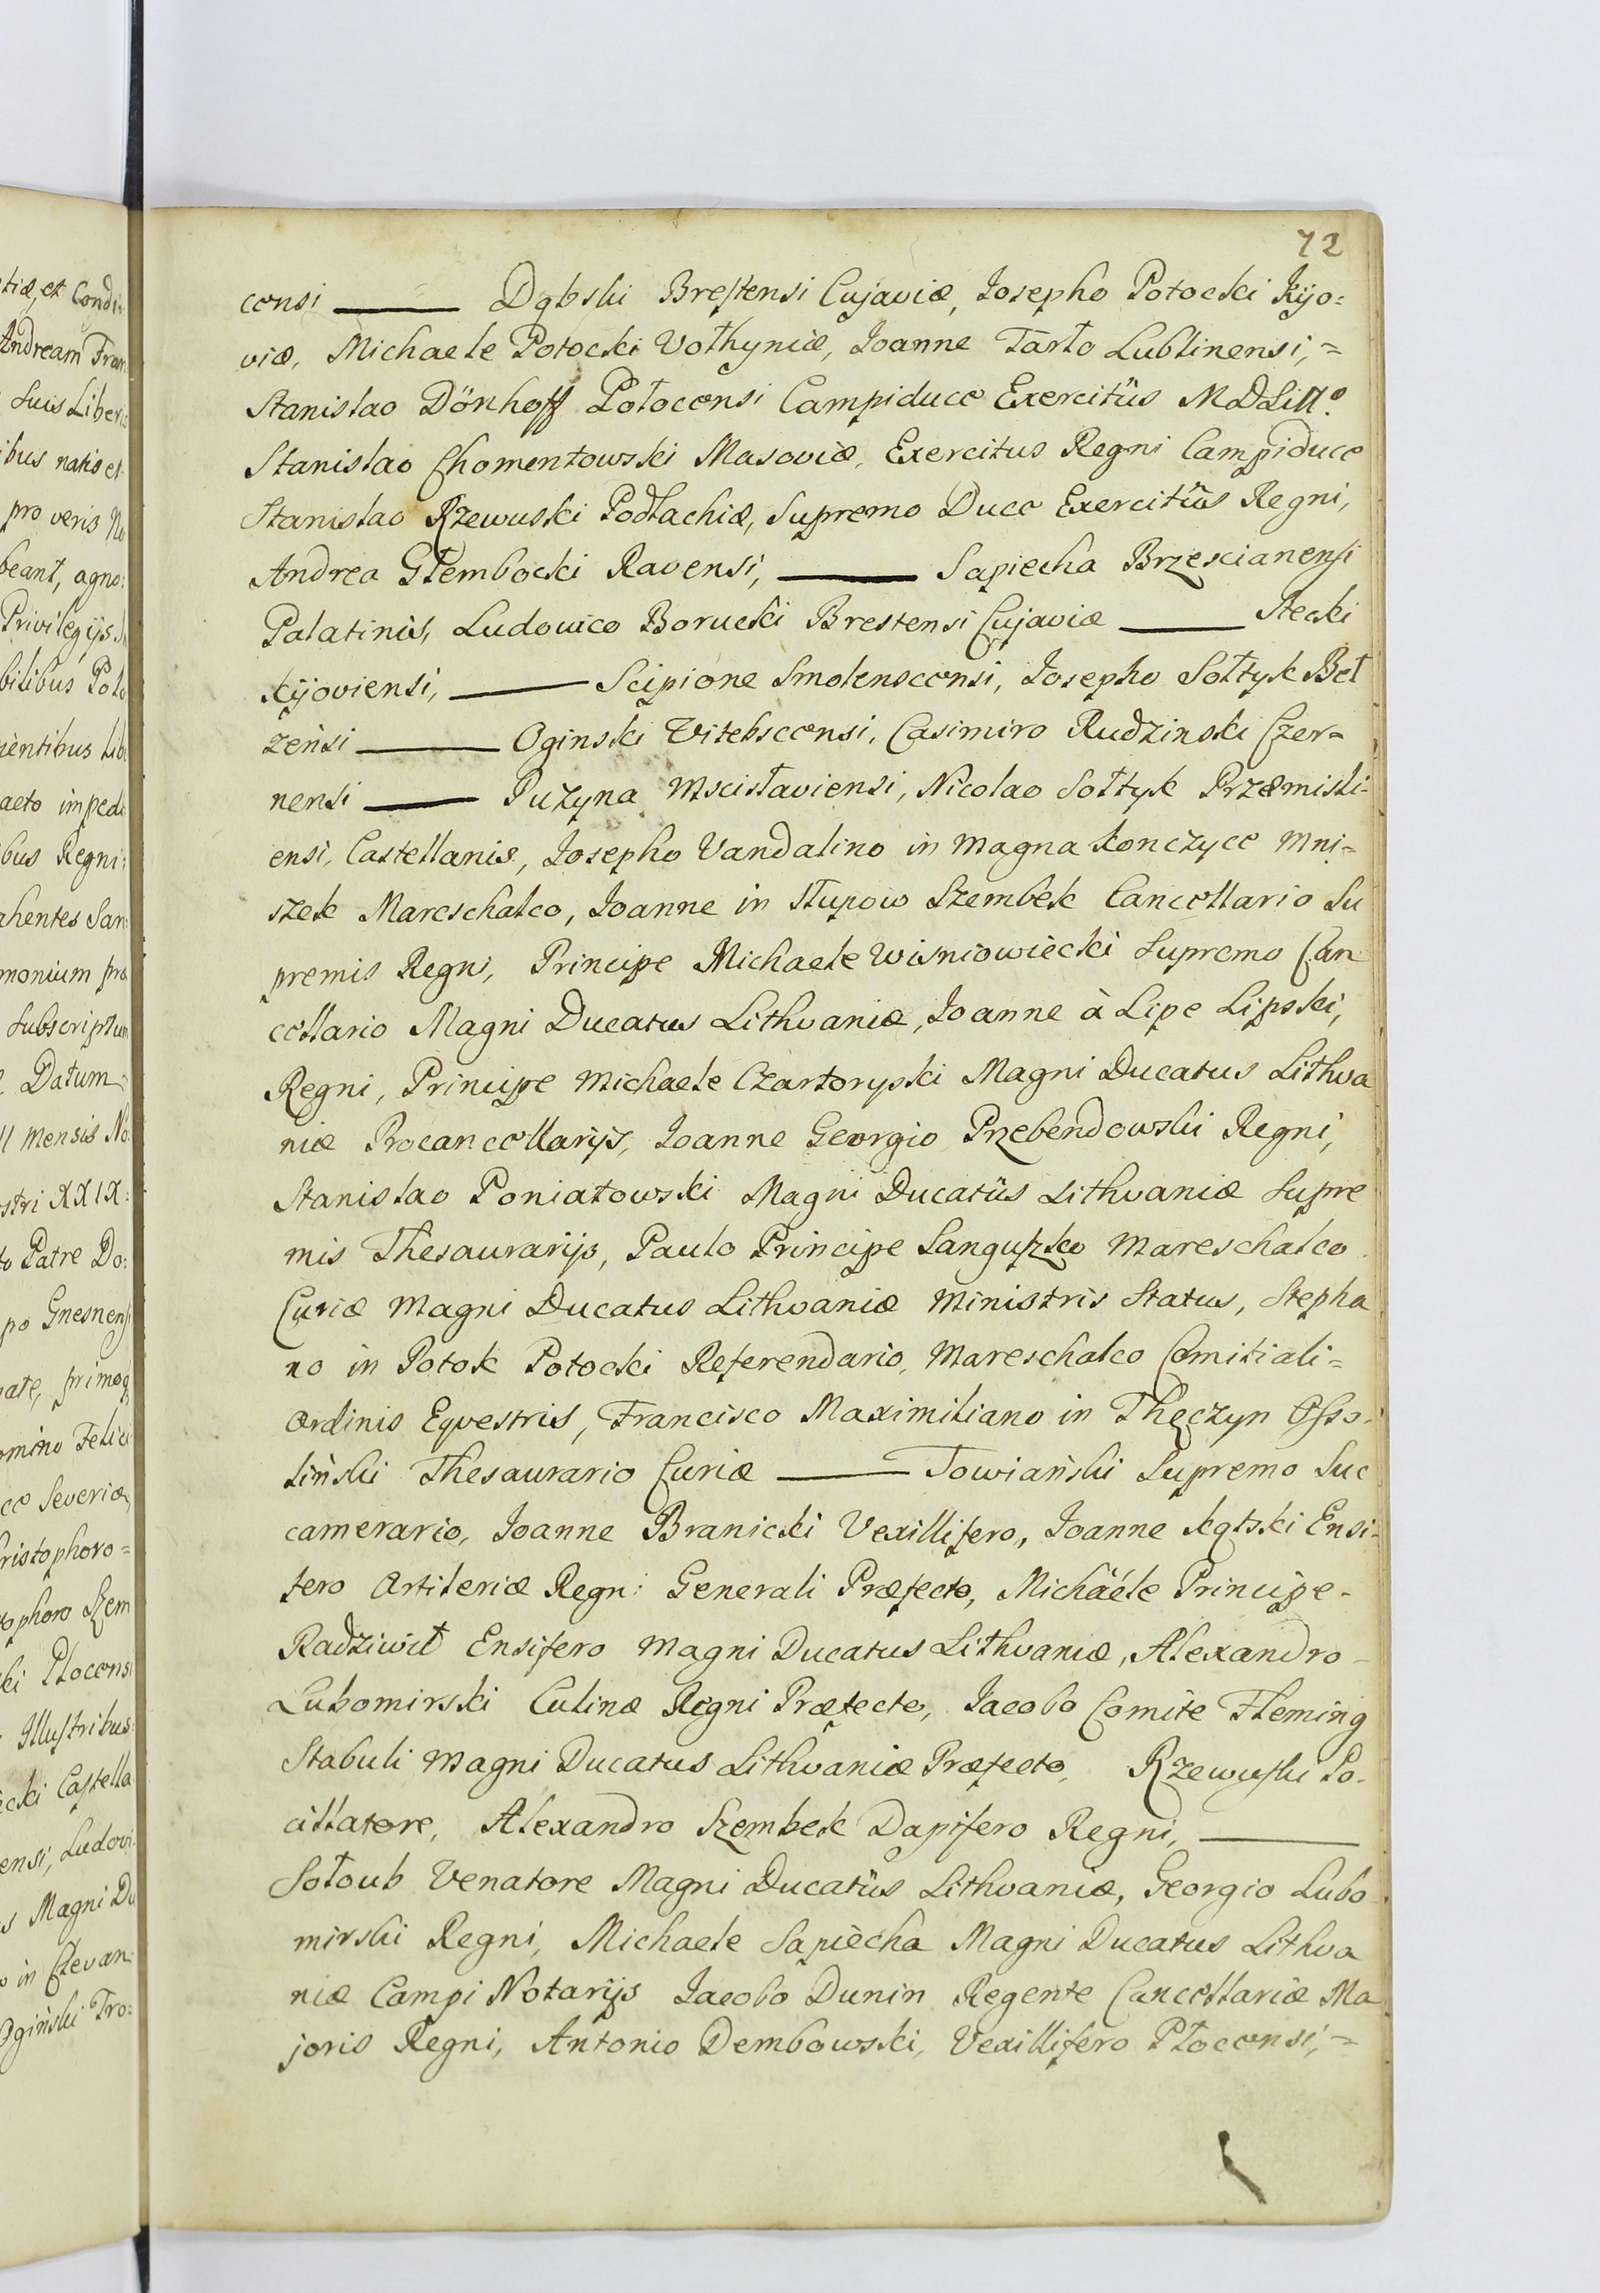 72
censi ——— Dąbski Brestensi Cujaviæ, Josepho Potocki Kijo=
viæ, Michaele Potocki Vołhyniæ, Joanne Tarło Lublinensi, =
Stanislao Dönhoff Połocensi Campiduce Exercitûs MDLitt.
Stanislao Chomentowski Masoviæ, Exercitus Regni Campiduce
Stanislao Rzewuski Podlachiæ, Supremo Duce Exercitûs Regni,
Andrea Głembocki Ravensi, ——— Sapiecha Brzescianensi
Palatinis, Ludovico Borucki Brestensi Cujaviæ ——— Stecki
Kijoviensi, ——— Scipione Smolenscensi, Josepho Sołtyk Beł
zensi ——— Oginski Vitebscensi, Casimiro Rudzinski Czer=
nensi ——— Puzyna Mscisłaviensi, Nicolao Sołtyk Przemisli-
ensi, Castellanis, Josepho Vandalino in Magna Konczyce Mni=
szek Mareschalco, Joanne in Słupow Szembek Cancellario Su
premis Regni, Principe Michaele Wisniowiecki Supremo Can
cellario Magni Ducatus Lithvaniæ, Joanne à Lipe Lipski,
Regni, Principe Michaele Czartoryski Magni Ducatus Lithva
niæ Procancellarijs, Joanne Georgio Przebendowski Regni,
Stanislao Poniatowski Magni Ducatûs Lithvaniæ Supre
mis Thesaurarijs, Paulo Principe Sanguszko Mareschalco
Curiæ Magni Ducatus Lithvaniæ Ministris Status, Stepha
no in Potok Potocki Referendario, Mareschalco Comitiali=
Ordinis Eqvestris, Francisco Maximiliano in Thęczyn Osso-
liński Thesaurario Curiæ ——— Towiański Supremo Suc
camerario, Joanne Branicki Vexillifero, Joanne Kątski Ensi-
fero Artileriæ Regni Generali Præfecto, Michaéle Principe-
Radziwił Ensifero Magni Ducatus Lithvaniæ, Alexandro-
Lubomirski Culinæ Regni Præfecto, Jacobo Comite Fleming
Stabuli Magni Ducatus Lithvaniæ Præfecto, Rzewuski Po-
cillatore, Alexandro Szembek Dapifero Regni, ———
Sołoub Venatore Magni Ducatûs Lithvaniæ, Georgio Lubo
mirski Regni, Michaele Sapiecha Magni Ducatus Lithva
niæ Campi Notarijs Jacobo Dunin Regente Cancellariæ Ma
joris Regni, Antonio Dembowski, Vexillifero Płocensi, =